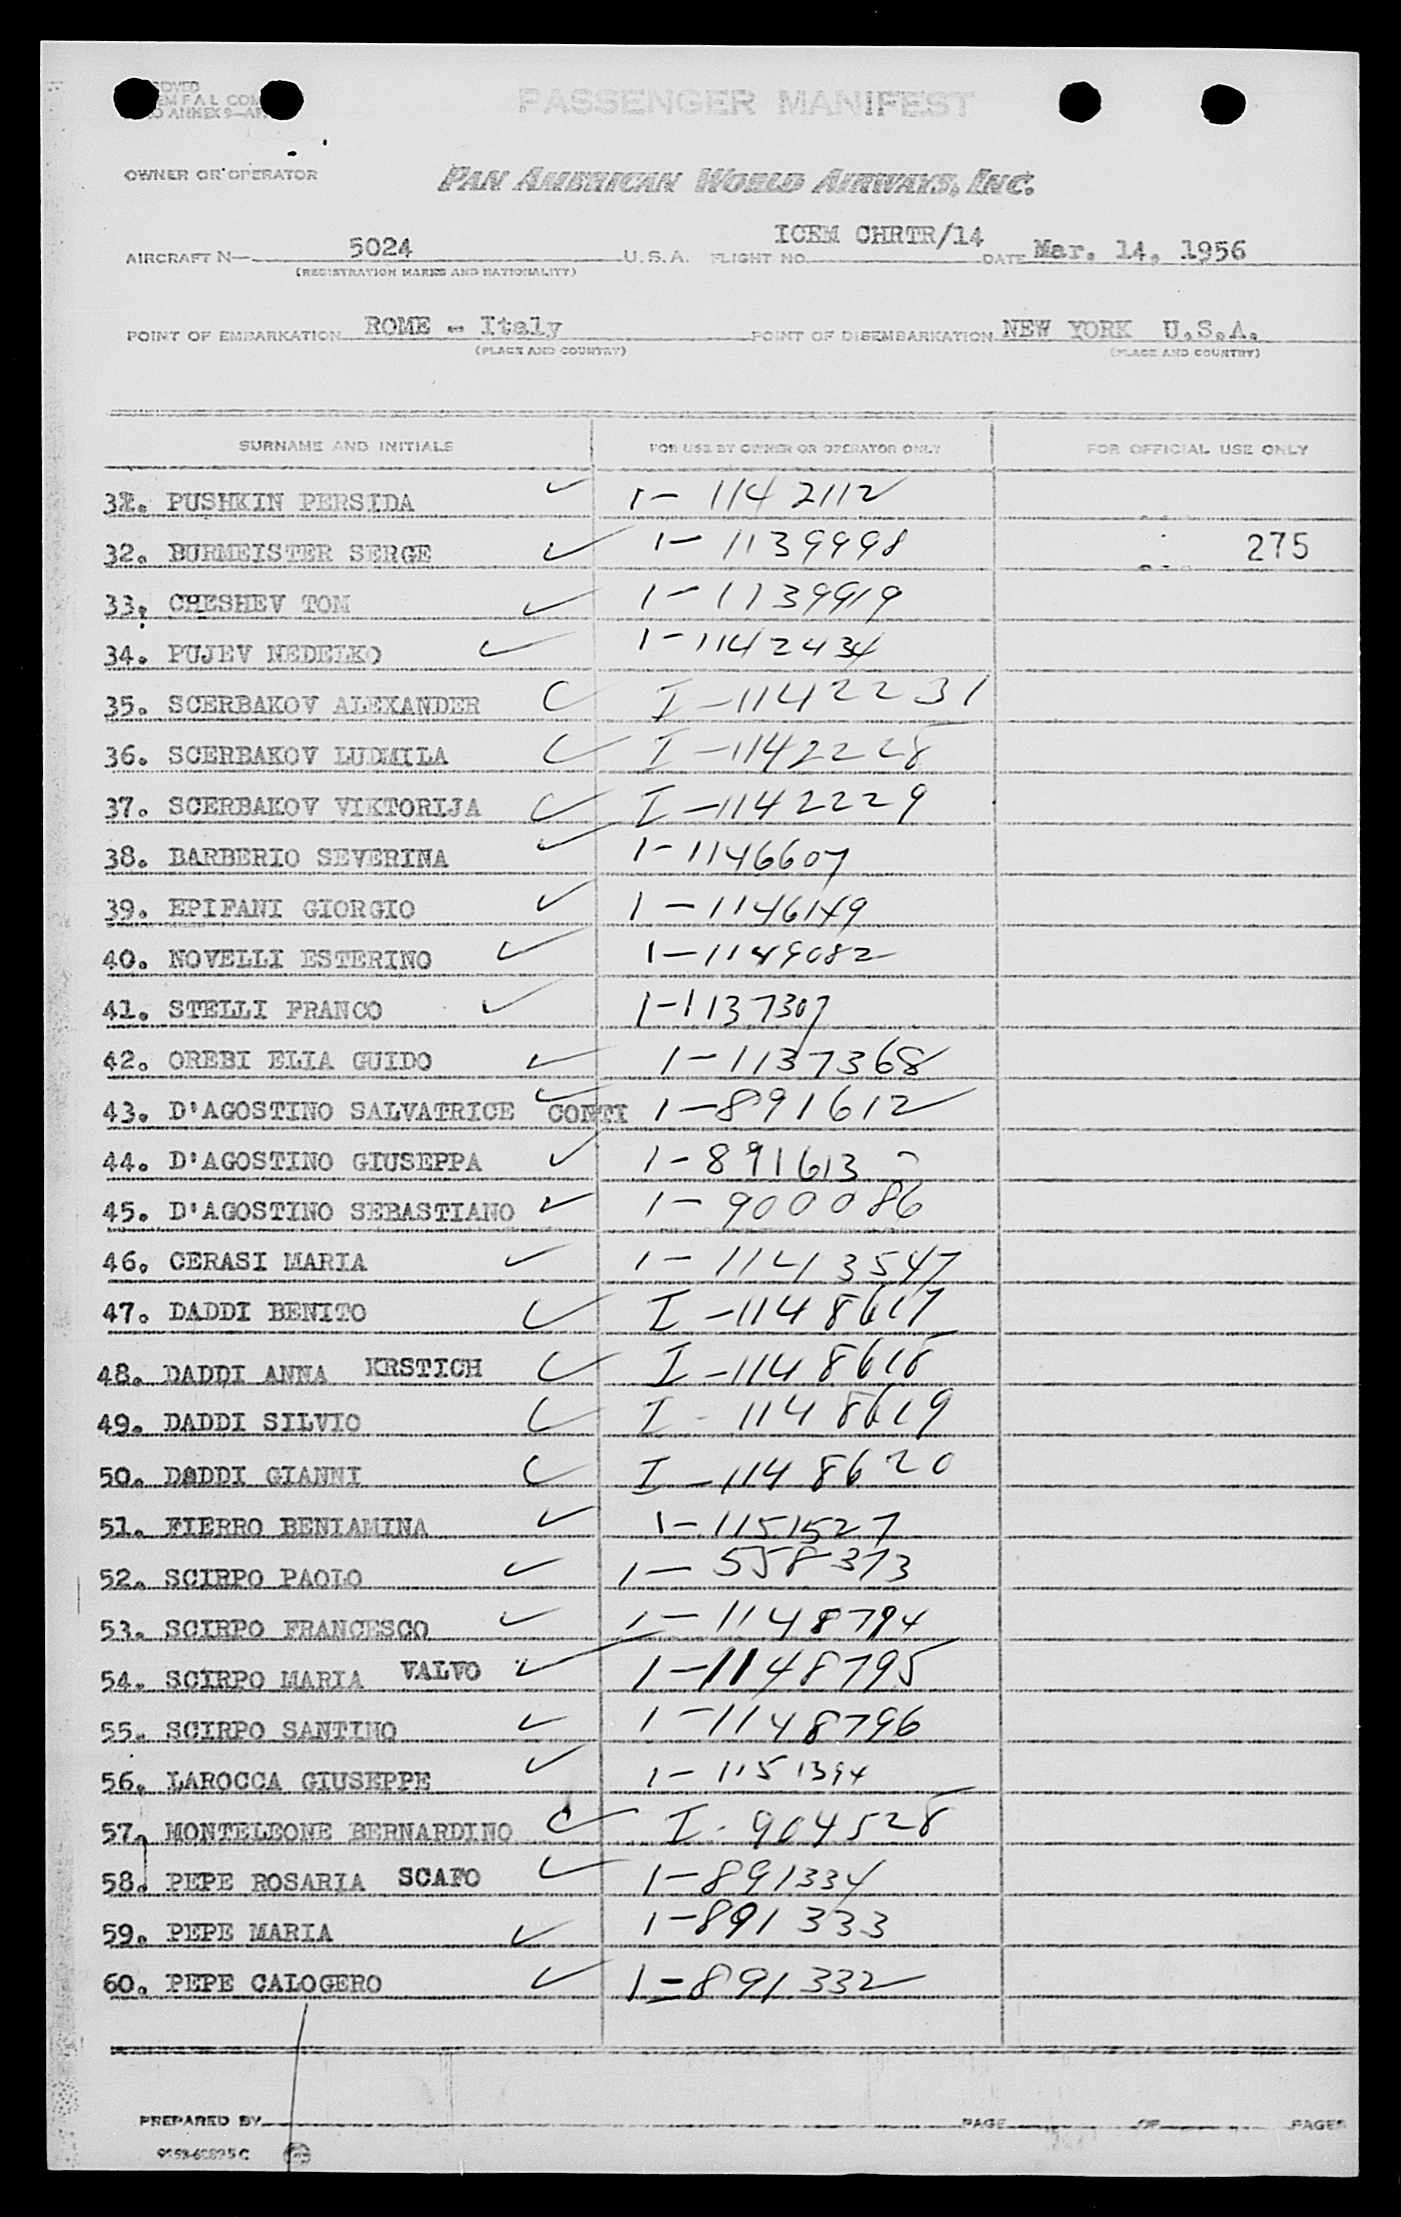 PASSENGER MANIFEST
OWNER OR OPERATOR PAN AMERICAN WORLD AIRWAYS, INC.
AIRCRAFT N— 5024 U.S.A. FLIGHT NO. ICEM CHRTR/14 DATE Mar. 14, 1956
(REGISTRATION MARKS AND NATIONALITY)
POINT OF EMBARKATION ROME - Italy POINT OF DISEMBARKATION NEW YORK U.S.A.
(PLACE AND COUNTRY) (PLACE AND COUNTRY)
SURNAME AND INITIALS FOR USE BY OWNER OR OPERATOR ONLY FOR OFFICIAL USE ONLY
31. PUSHKIN PERSIDA 1- 1142112
32. BURMEISTER SERGE 1- 1139998 275
33. CHESHEV TOM 1- 1139919
34. PUJEV NEDELKO 1- 1142434
35. SCERBAKOV ALEXANDER I -1142231
36. SCERBAKOV LUDMILA I -1142228
37. SCERBAKOV VIKTORIJA I -1142229
38. BARBERIO SEVERINA 1- 1146607
39. EPIFANI GIORGIO 1 -1146149
40. NOVELLI ESTERINO 1-1149082
41. STELLI FRANCO 1-1137307
42. OREBI ELIA GUIDO 1-1137368
43. D'AGOSTINO SALVATRICE CONTI 1-891612
44. D'AGOSTINO GIUSEPPA 1-891613
45. D'AGOSTINO SEBASTIANO 1- 900086
46. CERASI MARIA 1- 1143547
47. DADDI BENITO I -1148617
48. DADDI ANNA KRSTICH I -1148618
49. DADDI SILVIO I - 1148619
50. DADDI GIANNI I -1148620
51. FIERRO BENIAMINA 1- 1151527
52. SCIRPO PAOLO 1- 558373
53. SCIRPO FRANCESCO 1- 1148794
54. SCIRPO MARIA VALVO 1-1148795
55. SCIRPO SANTINO 1-1148796
56. LAROCCA GIUSEPPE 1- 1151394
57. MONTELEONE BERNARDINO I- 904528
58. PEPE ROSARIA SCAFO 1-891334
59. PEPE MARIA 1-891333
60. PEPE CALOGERO 1-891332
PREPARED BY PAGE OF PAGES